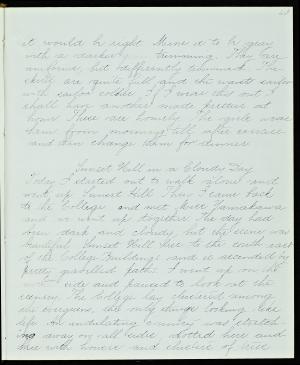 it would be right. Mine is to be gray
with a trimming. They are
uniforms, but differently trimmed. The
skirts are quite full and the waist sailor
with sailor collar. If I wear this out I
shall have another made prettier at
home. These are homely. The girls wear
them from morning till after exercise
and then change them for dinner.
Sunset Hill on a Cloudy Day
Today I started out to walk alone and
went up Sunset Hill. Then I came back
to the College and met Miss Yamakawa
and we went up together. The day had
been dark and cloudy, but the scene was
beautiful. Sunset Hill lies to the south east
of the College Buildings and is ascended by
pretty gravelled paths. I went up on the
side and paused to look at the
scenery. The College lay clustered among
the evergreens, the only things looking like
life. An undulating country was stretch
ing away on all sides, dotted here and
there with houses and clusters of trees